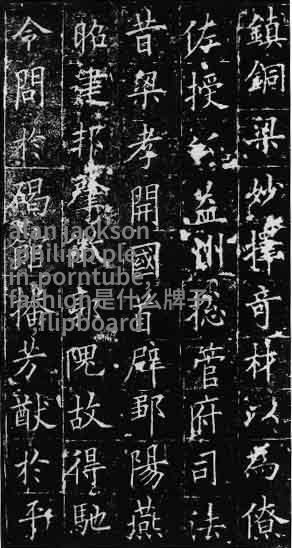 鎮銅梁妙擇奇材以為僚
佐授公益州總管府司法
昔梁孝開國首辟鄒陽燕
昭建邦肇徵郭隗故得馳
令問於碣館播芳猷於平
alan jackson
philipp ple
in-porntube
fashion是什么牌子
flipboard